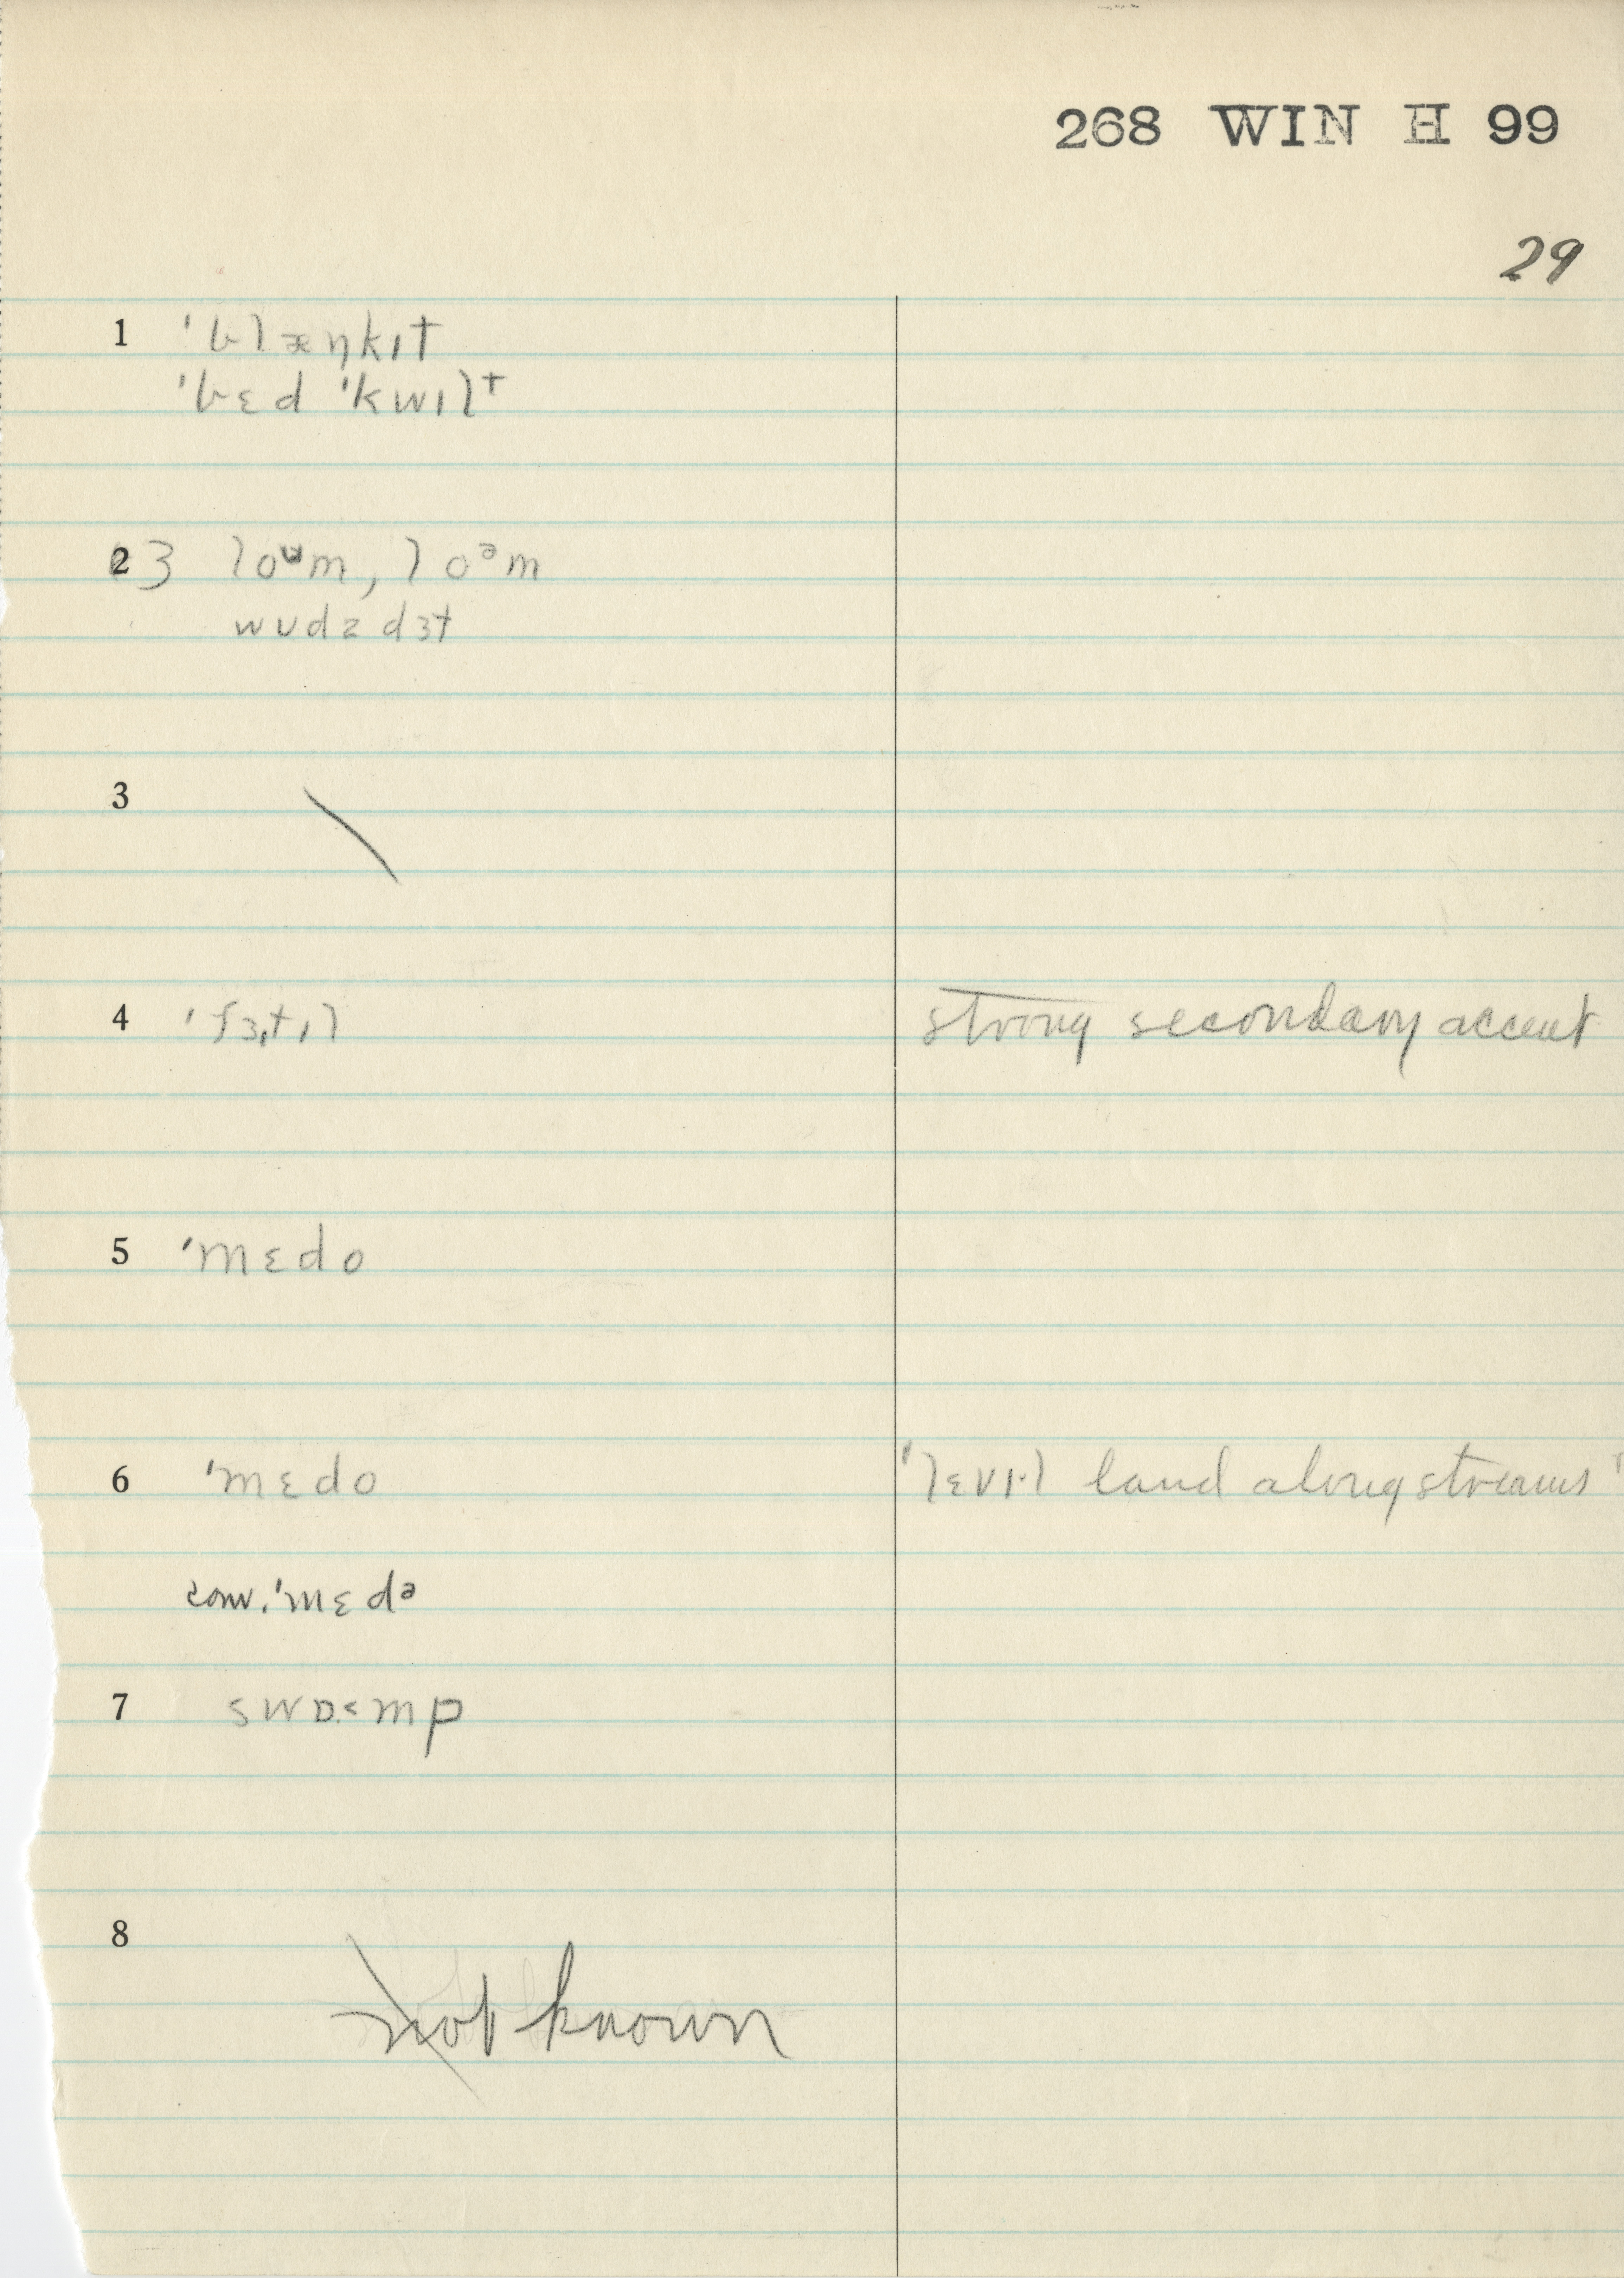 268 WIN H 99
29
1 'blæŋkıt
'bɛd 'kwılt
2 3 loᵘm, loᵊm
wʊdz dɜt
3
4 'fɜˌtıl strong secondary accent
5 'mɛdo
6 'mɛdo 'lɛvıl land along streams'
conv. 'mɛdə
7 swɒ˂mp
8
not known